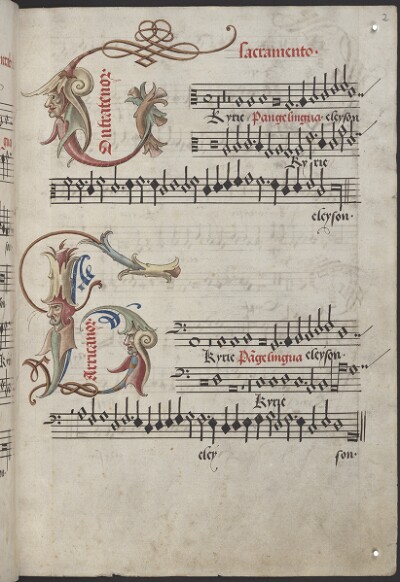 2
sacramento.
Contratenor
Kyrie Pange lingua eleyson
Kyrie
eleyson.
Barricanor
Kyrie Pãge lingua eleyson.
Kyrie
eley son.